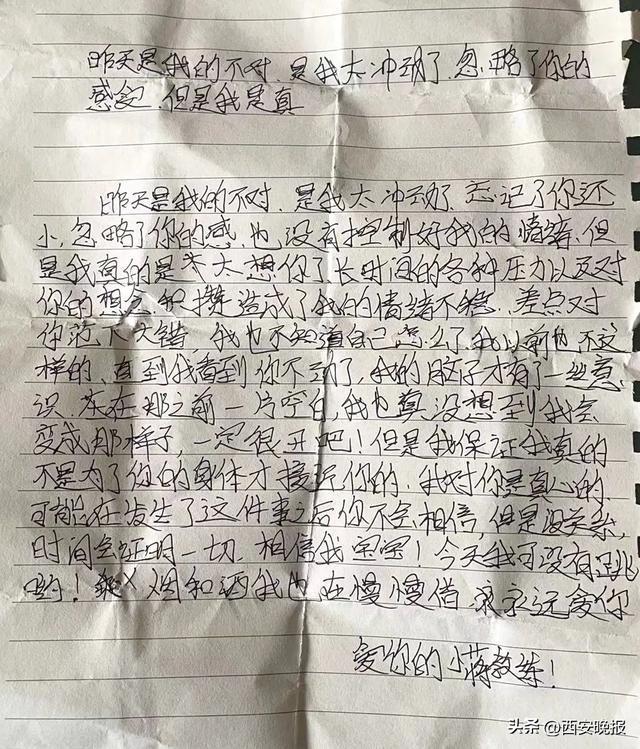 昨天是我的不对,是我太冲动了,忽略了你的
感受 但是我是真
昨天是我的不对,是我太冲动了,忘记了你还
小,忽略了你的感,也没有控制好我的情绪,但
是我真的是太想你了长时间的各种压力以及对
你的想念积攒造成了我的情绪不稳、差点对
你范下大错 我也不知道自己怎么了,我以前也不这
样的、直到我看到你不动了,我的脑子才有了一丝意
识,在那之前一片空白,我也真没想到我会
变成那样子,一定很丑吧!但是我保证我真的
不是为了你的身体才接近你的,我对你是真心的
可能在发生了这件事之后你不会相信,但是没关系,
时间会证明一切,相信我宝宝!今天我可没有
哟! 烟和酒我也在慢慢借 永远爱你
爱你的小蒋教练!
头条 @西安晚报